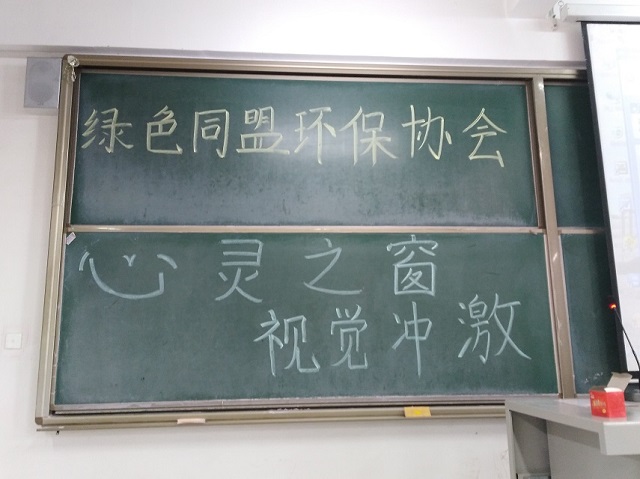 绿色同盟环保协会
心灵之窗
视觉冲激